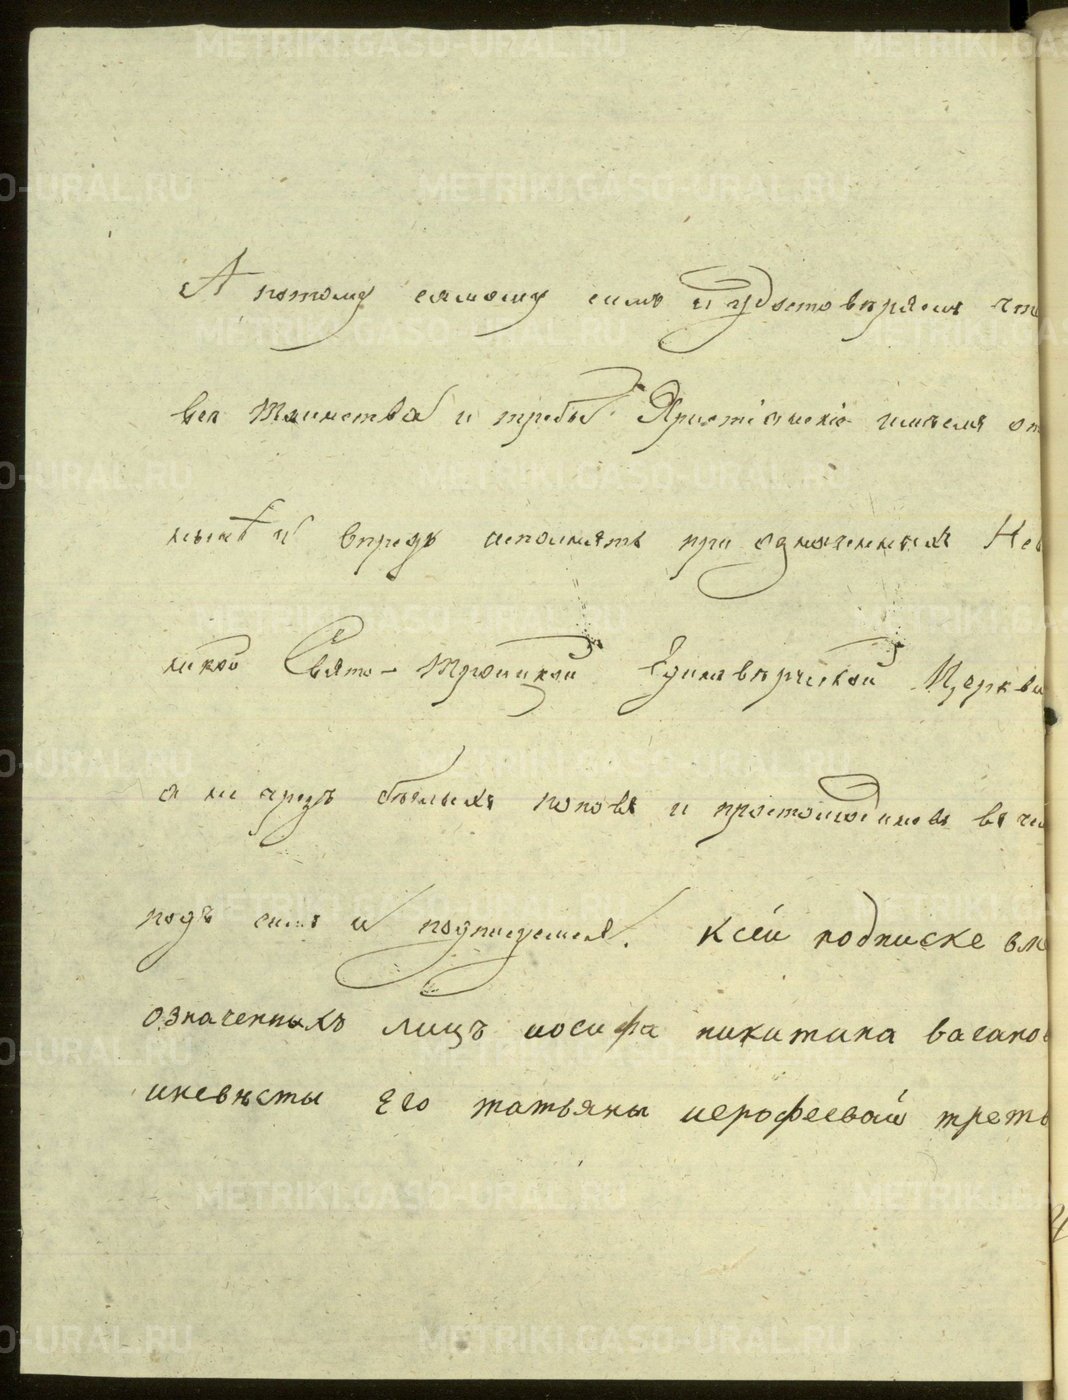 METRIKI.GASO-URAL.RU
А потому самому симъ и удостовѣряемъ что
вся таинства и требы Христіанскія имѣемъ от
нынѣ и впредь исполнять при означенной Нев
кой Свято-Троицкой Единовѣрческой Церкви
а не чрезъ бѣглыхъ поповъ и простолюдиновъ въ чем
подъ симъ и подписуемся. Ксей подписке вм
означенныхъ лицъ иосифа никитина
иневѣсты его татьяны иерофеевай треть